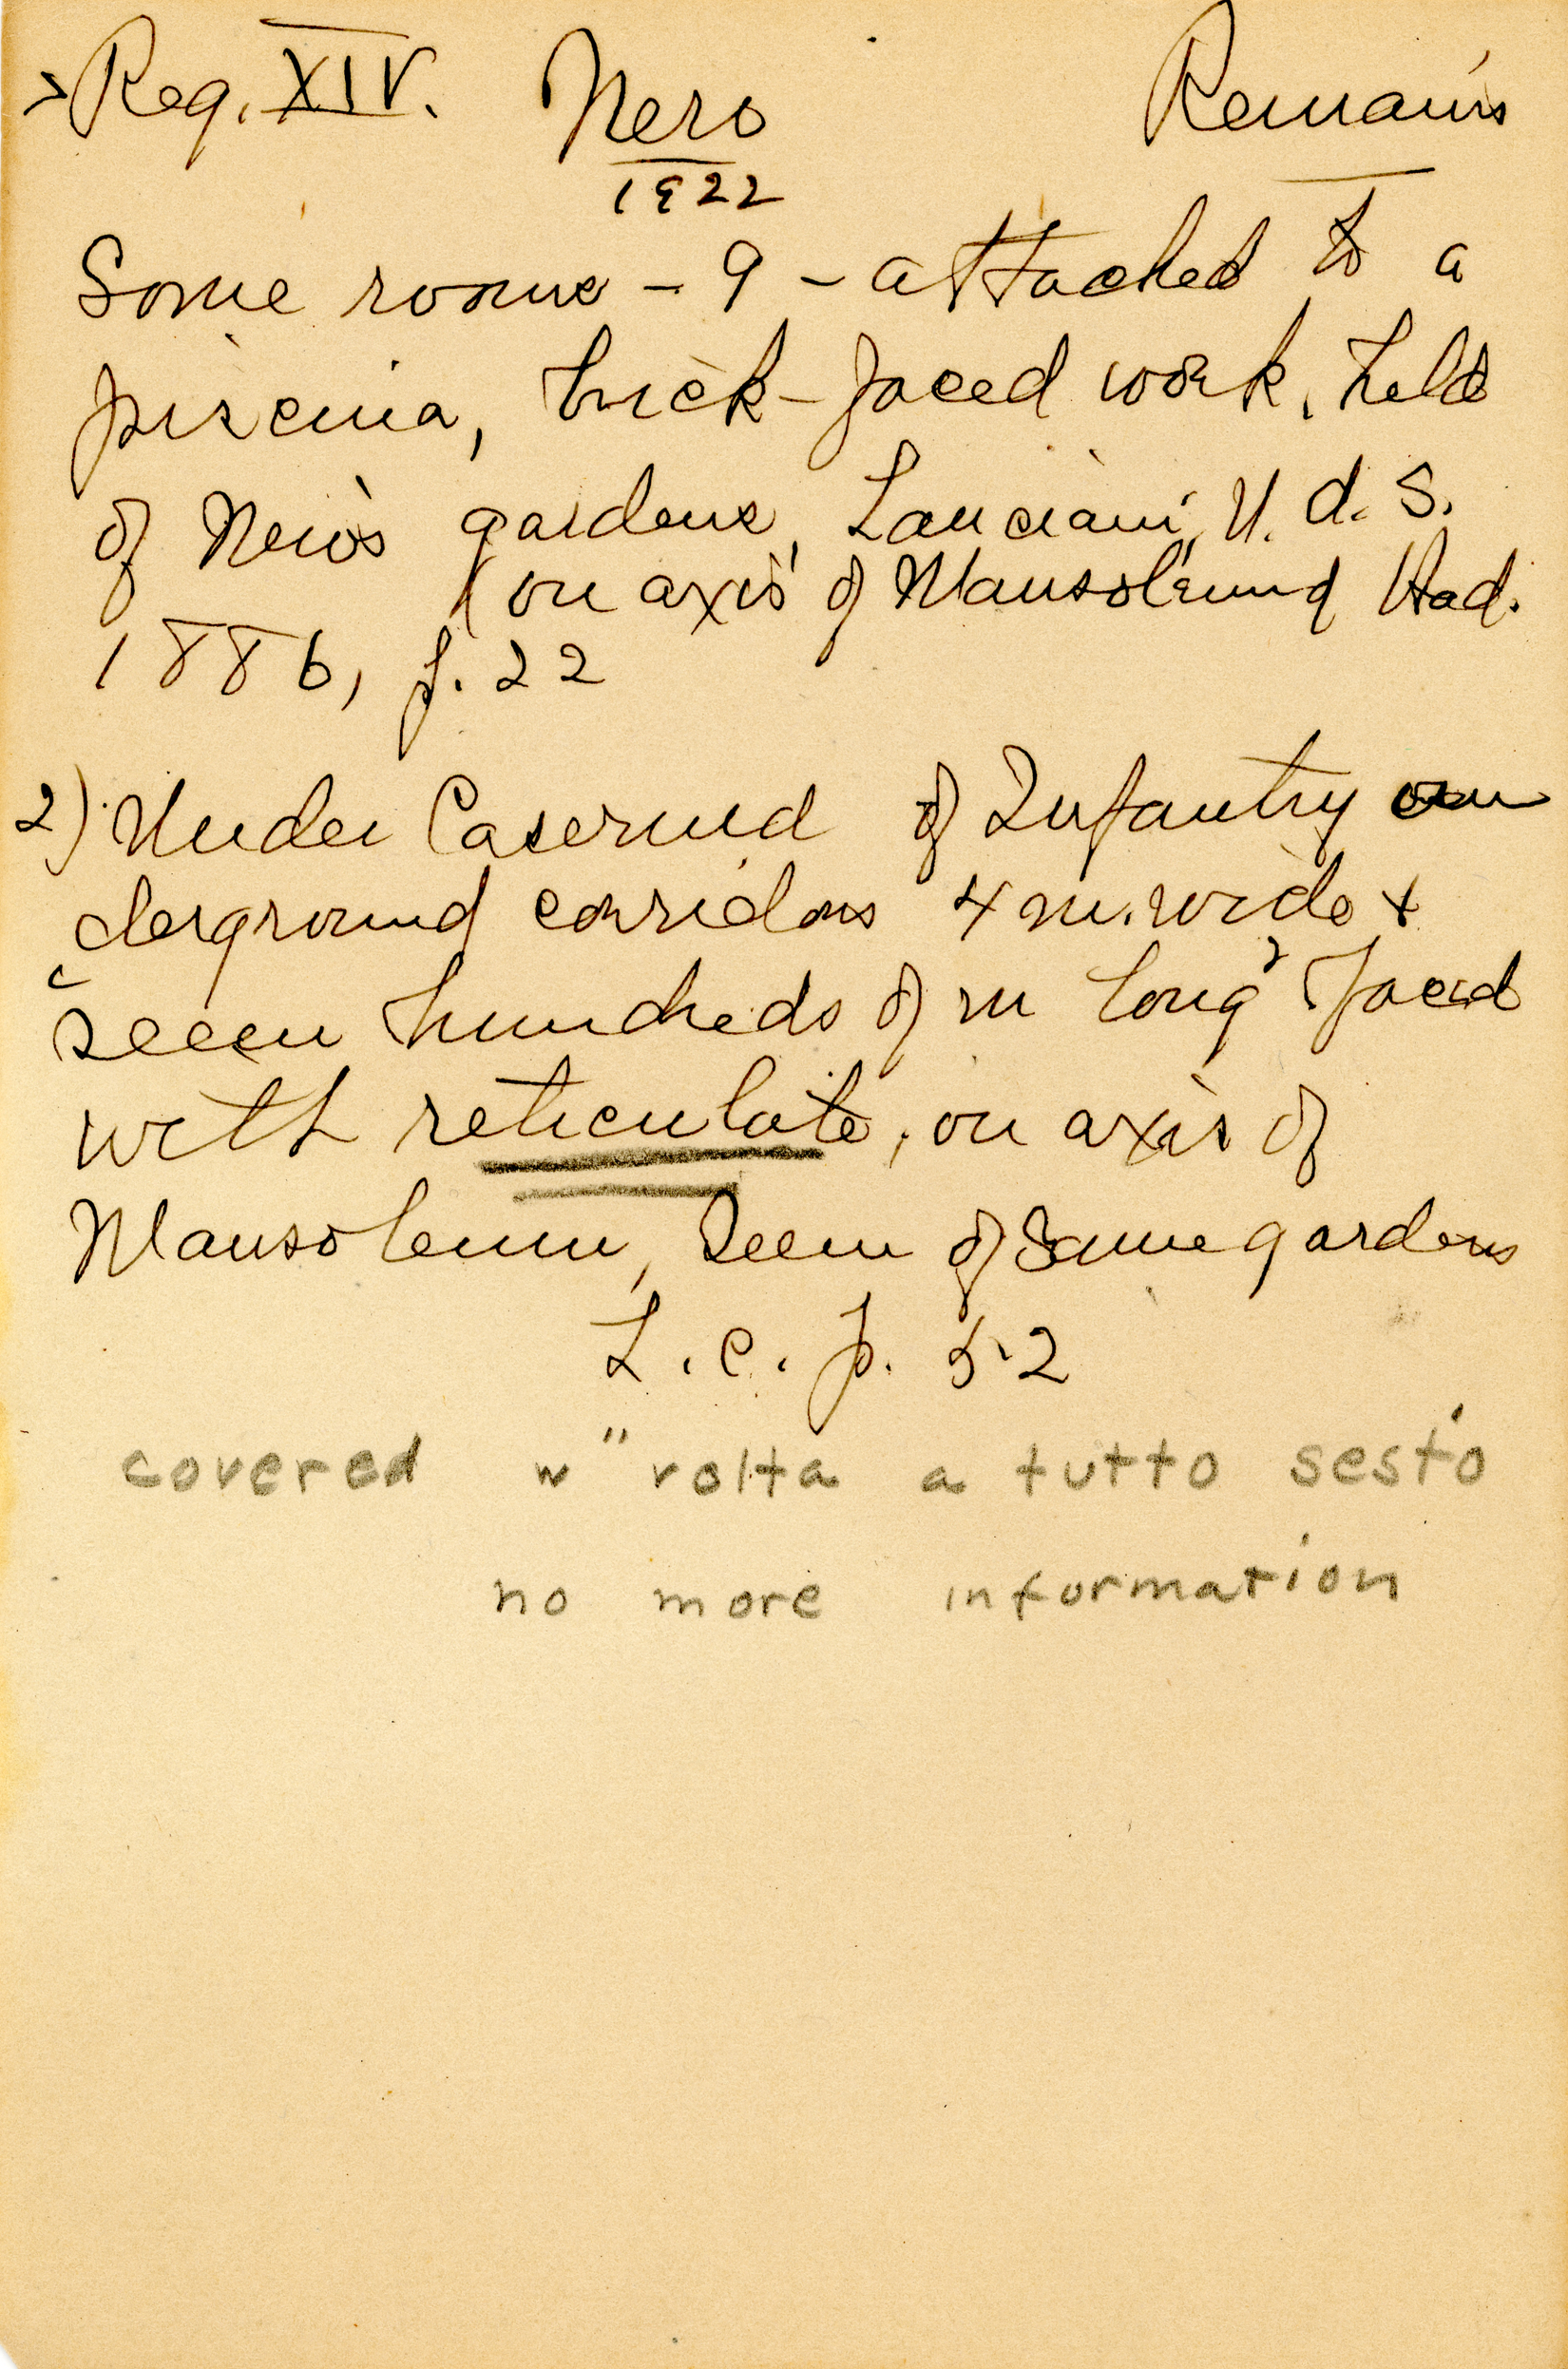 > Reg. XIV. Nero Remains
1922
Some rooms – 9 – attached to a
piscina, brick-faced work, held
of Nero's gardens, Lanciani, N. d. S.
(on axis of Mausoleum of Had.
1886, p. 22
2) Under Caserma of Infantry un
derground corridors 4 m. wide +
seem hundreds of m long, faced
with reticulate, on axis of
Mausoleum, seem of same gardens
L. c. p. 52
covered w "volta a tutto sesto
no more information